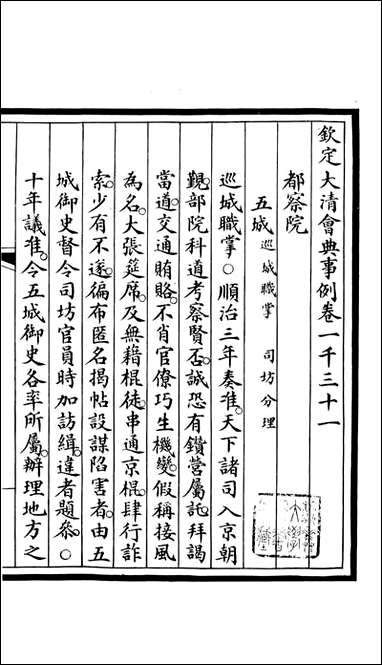 欽定大清會典事例卷一千三十一
都察院
五城 巡城職掌 司坊分理
巡城職掌○順治三年奏准。天下諸司入京朝
覲。部院科道考察賢否。誠恐有鑽營屬託。拜謁
當道。交通賄賂。不肖官僚。巧生機變。假稱接風
為名。大張筵席。及無藉棍徒。串通京棍。肆行詐
索。少有不遂。徧布匿名揭帖。設謀陷害者。由五
城御史督令司坊官員時加訪緝。違者題參。○
十年議准。今五城御史各率所屬。辦理地方之